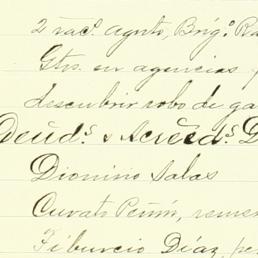 2 vac.s agsto, Brig.o Ra
Gtos. en agencias p
descubrir robo de ga
Deud.s & Acreed.s G
Dionino Salas
Curato Peñón, remes
Tiburcio Díaz, per